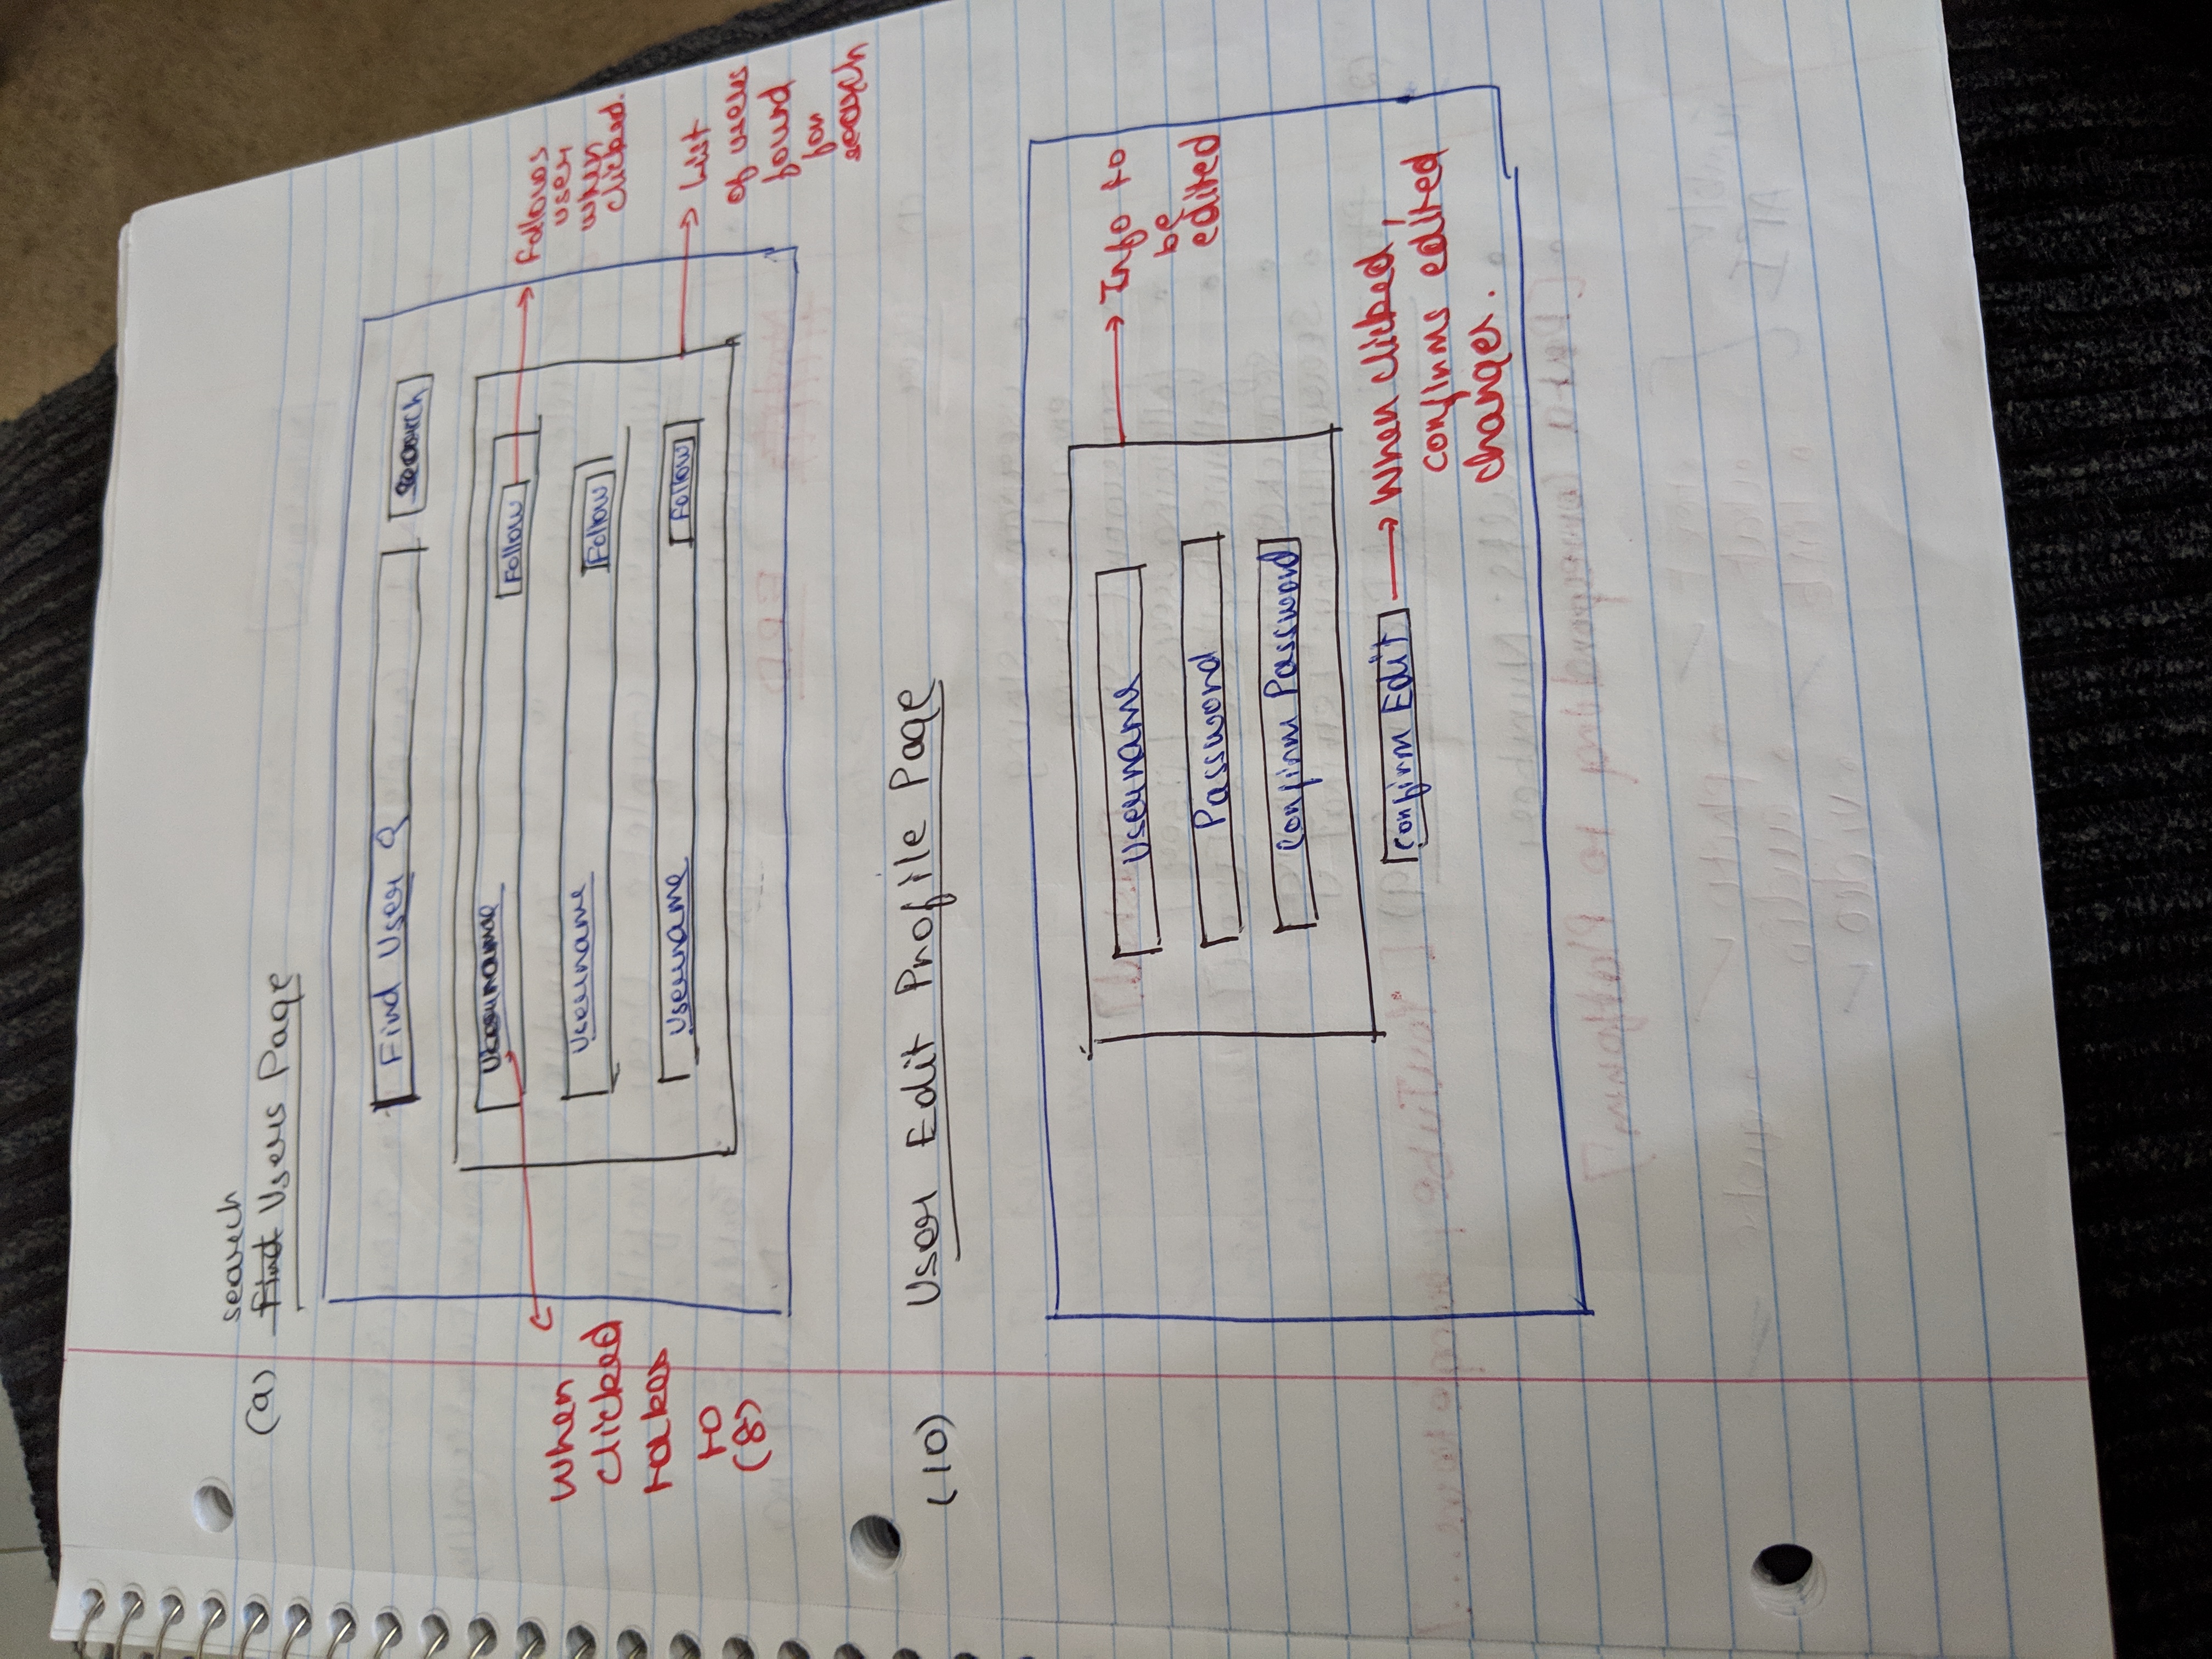 search
(9) Find Users Page
Find User
Search
Username
Follow
Username
Follow
Username
Follow
When
clicked
takes
to
(8)
Follows
user
when
clicked.
List
of users
found
for
search
(10) User Edit Profile Page
Username
Password
Confirm Password
Confirm Edit
Info to
be
edited
When clicked,
confirms edited
changes.